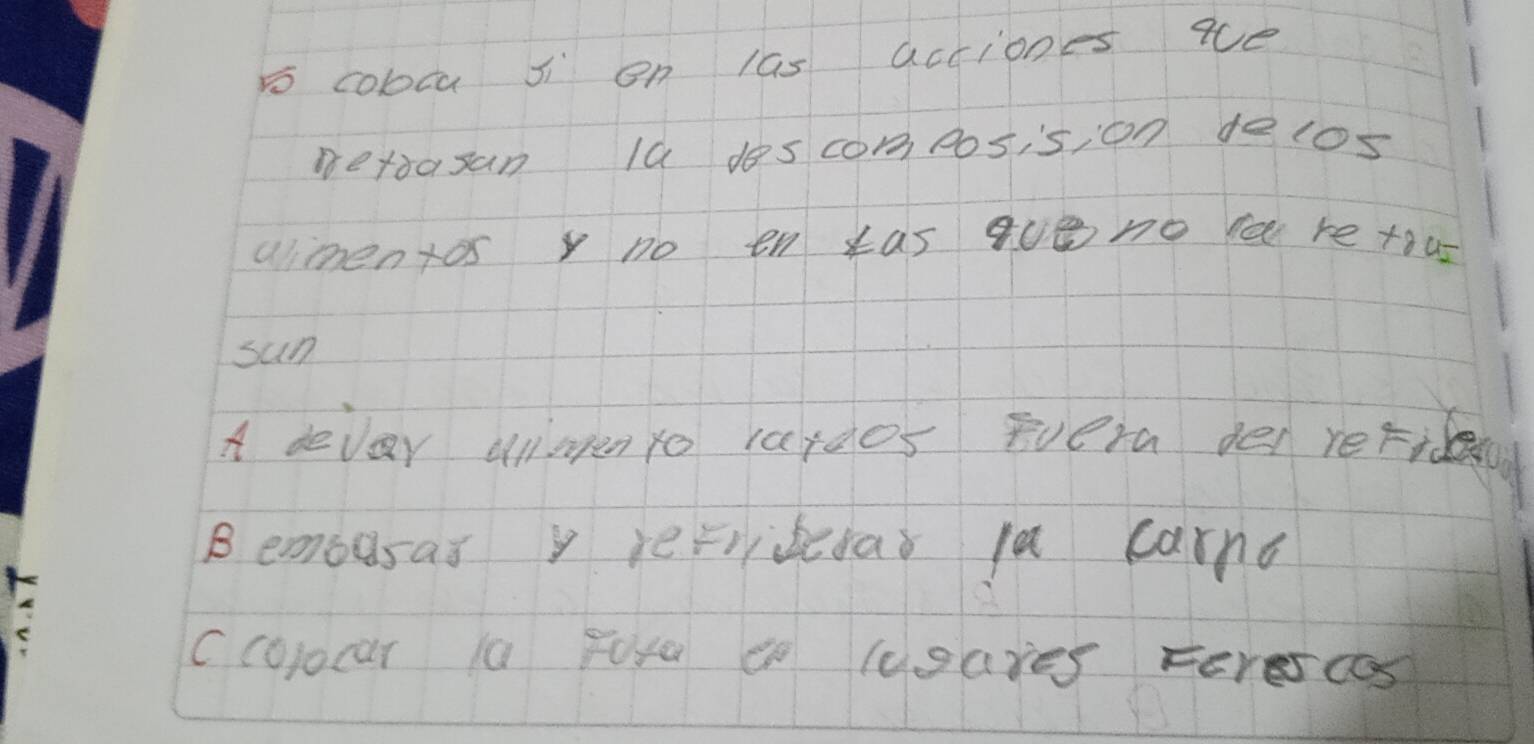 5 coloca si en las acciones que
retrasan la descomposision de los
alimentos y no en las que no la retra-
san
A devar alimento latdos Fuera del
B embasar y refrijerar la carne
C colocar la Futa en lugares Ferescos